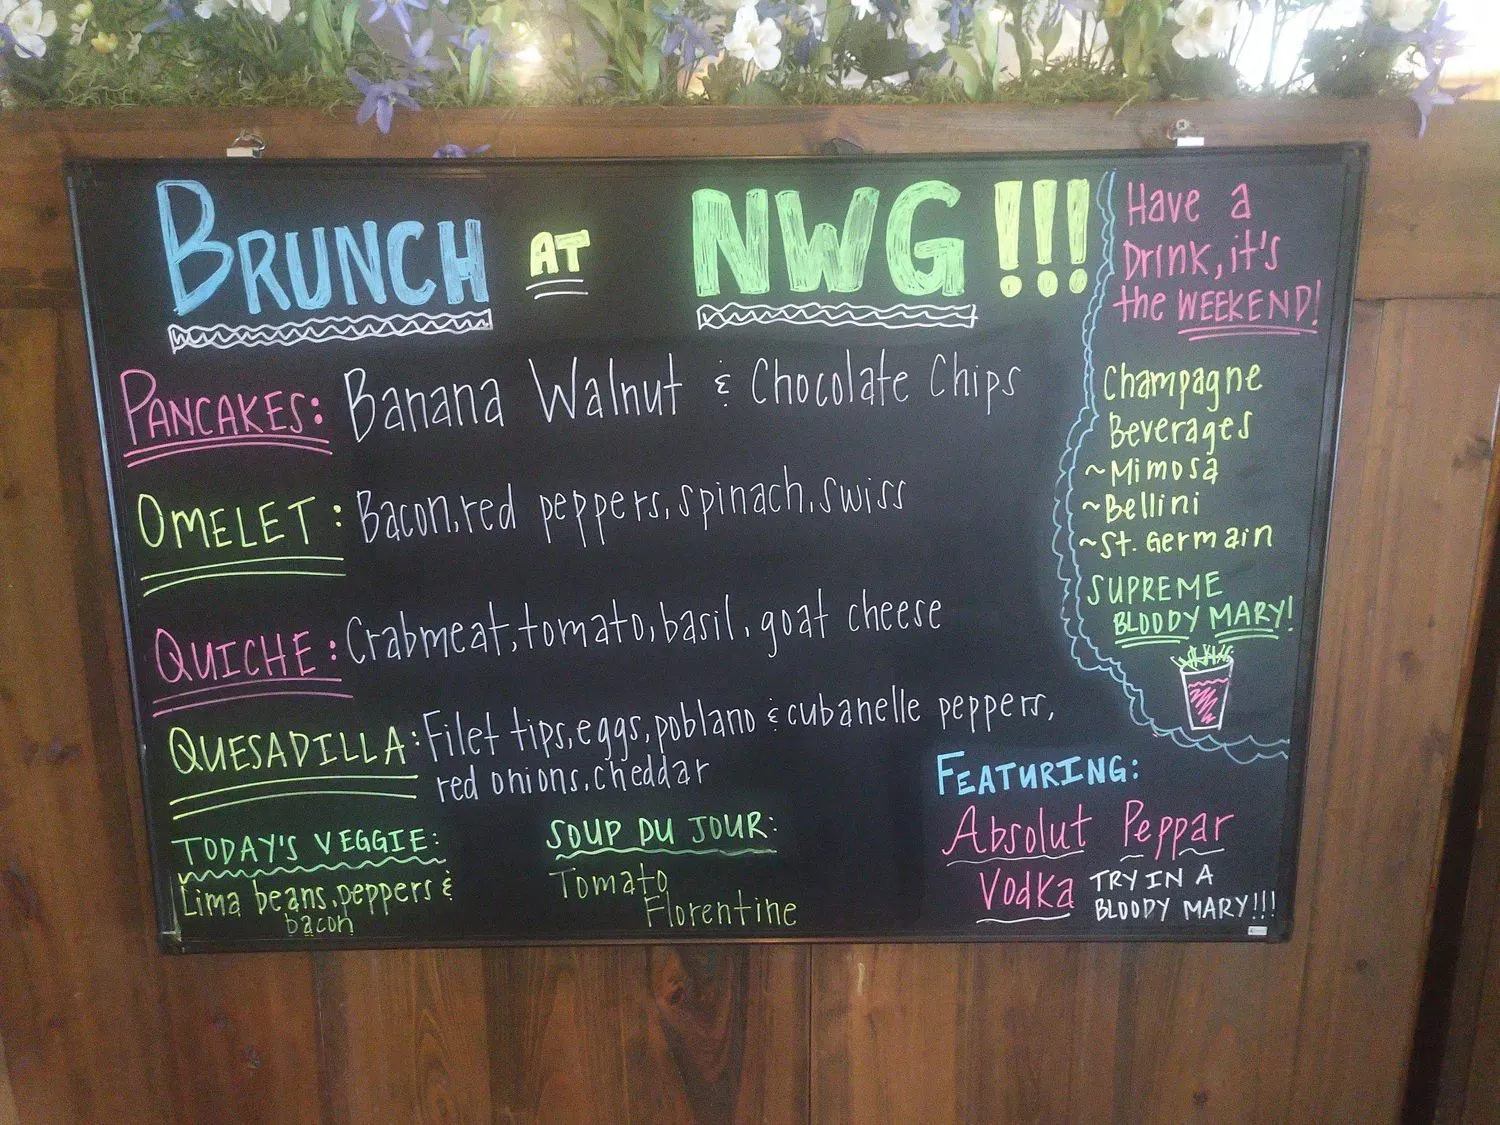 BRUNCH AT NWG!!!
PANCAKES: Banana Walnut & Chocolate Chips
OMELET: Bacon, red peppers, spinach, swiss
QUICHE: Crabmeat, tomato, basil, goat cheese
QUESADILLA: Filet tips, eggs, poblano & cubanelle peppers,
red onions, cheddar
TODAY'S VEGGIE:
Lima beans, peppers &
bacon
SOUP DU JOUR:
Tomato
Florentine
Have a
Drink, it's
the WEEKEND!
Champagne
Beverages
~Mimosa
~Bellini
~St. Germain
SUPREME
BLOODY MARY!
FEATURING:
Absolut Peppar
Vodka TRY IN A
BLOODY MARY!!!